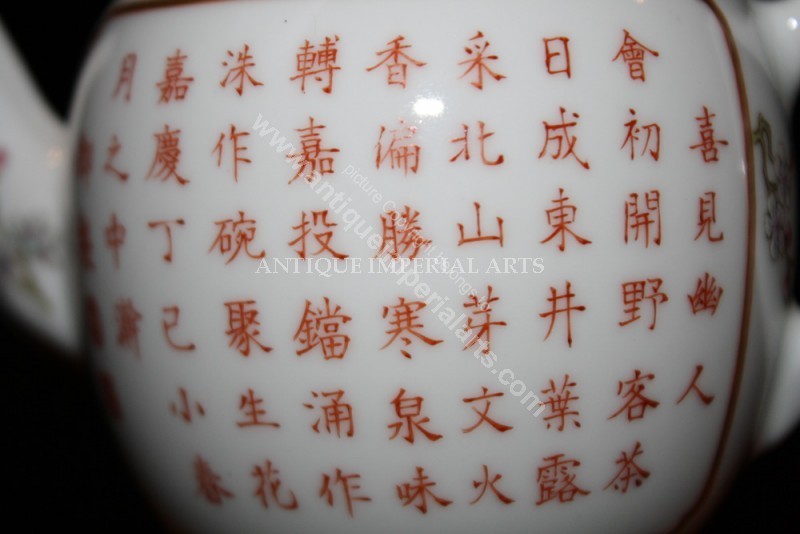 喜見幽人
會初開野客茶
日成東井葉露
采北山芽文火
香偏勝寒泉味
轉嘉投鐺涌作
洙作碗聚生花
嘉慶丁巳小春
月之中瀚
ANTIQUE IMPERIAL ARTS